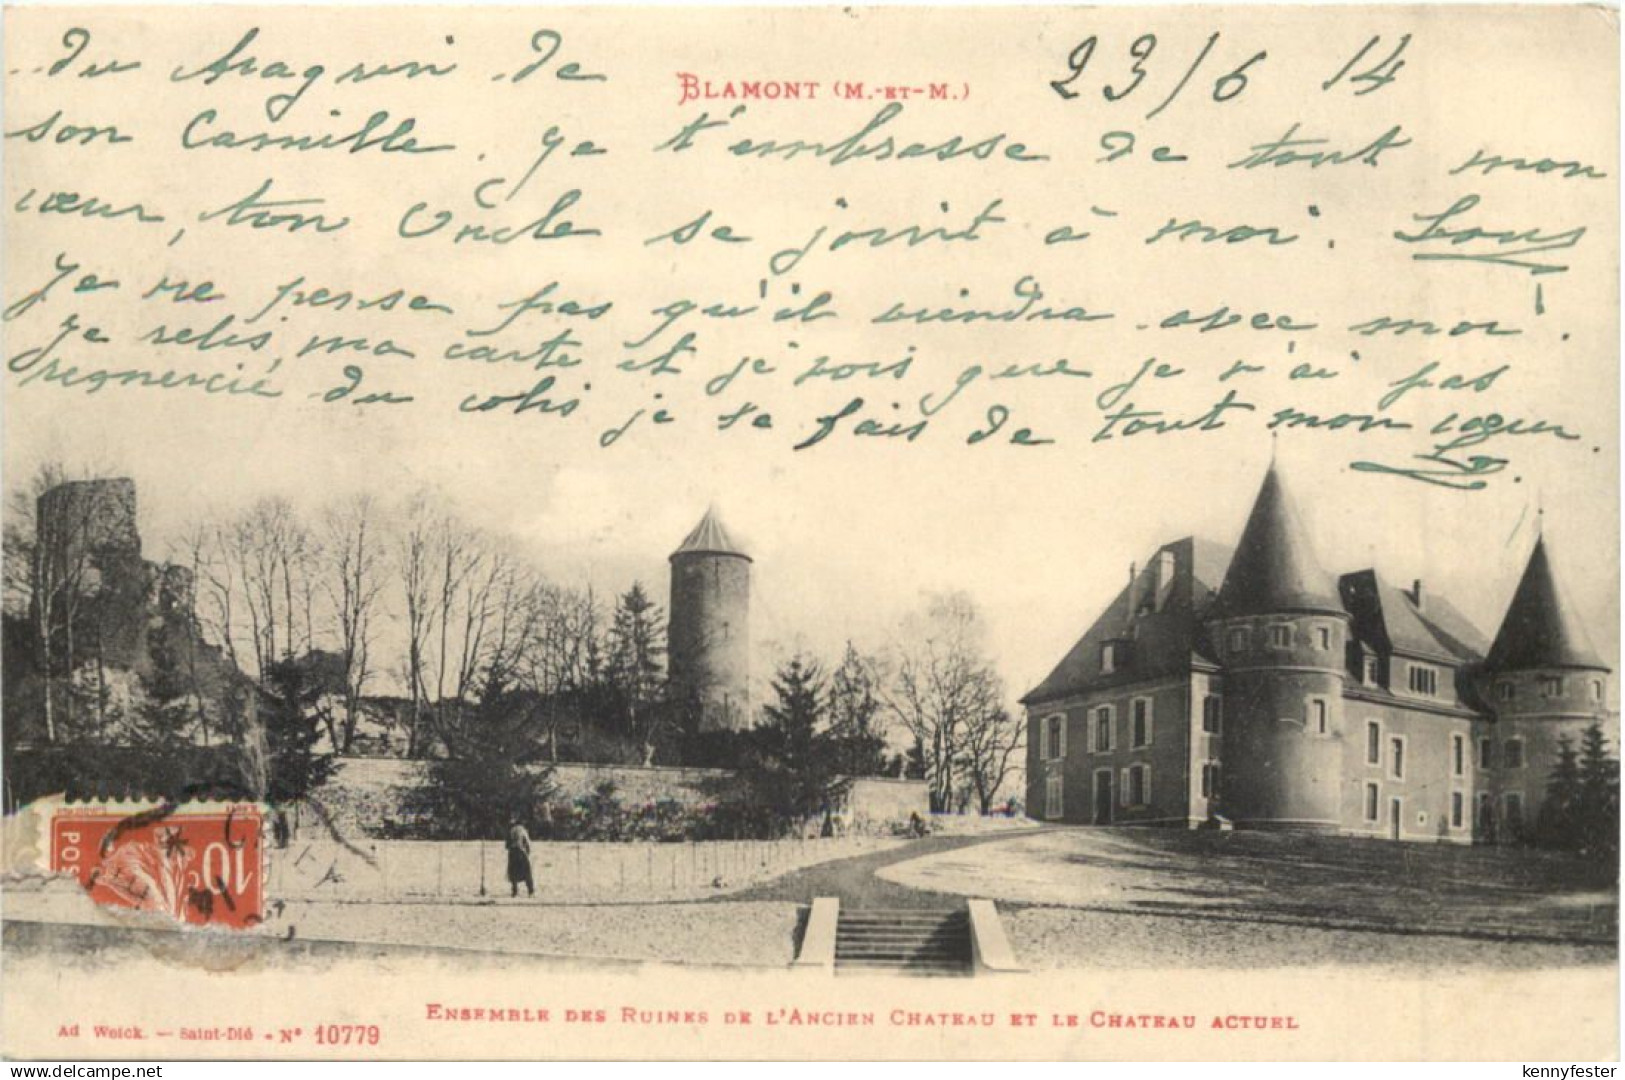 du Magrin de
BLAMONT (M.-ET-M.)
23/6 14
son Camille. Je t'embrasse de tout mon
cœur, ton Oncle se joint à moi.
Je ne pense pas qu'il viendra avec moi.
Je relis ma carte et je vois que je n'ai pas
remercié du colis je le fais de tout mon cœur.
10
POS
ENSEMBLE DES RUINES DE L'ANCIEN CHATEAU ET LE CHATEAU ACTUEL
Ad Weick. — Saint-Dié - N° 10779
delcampe.net
kennyfester